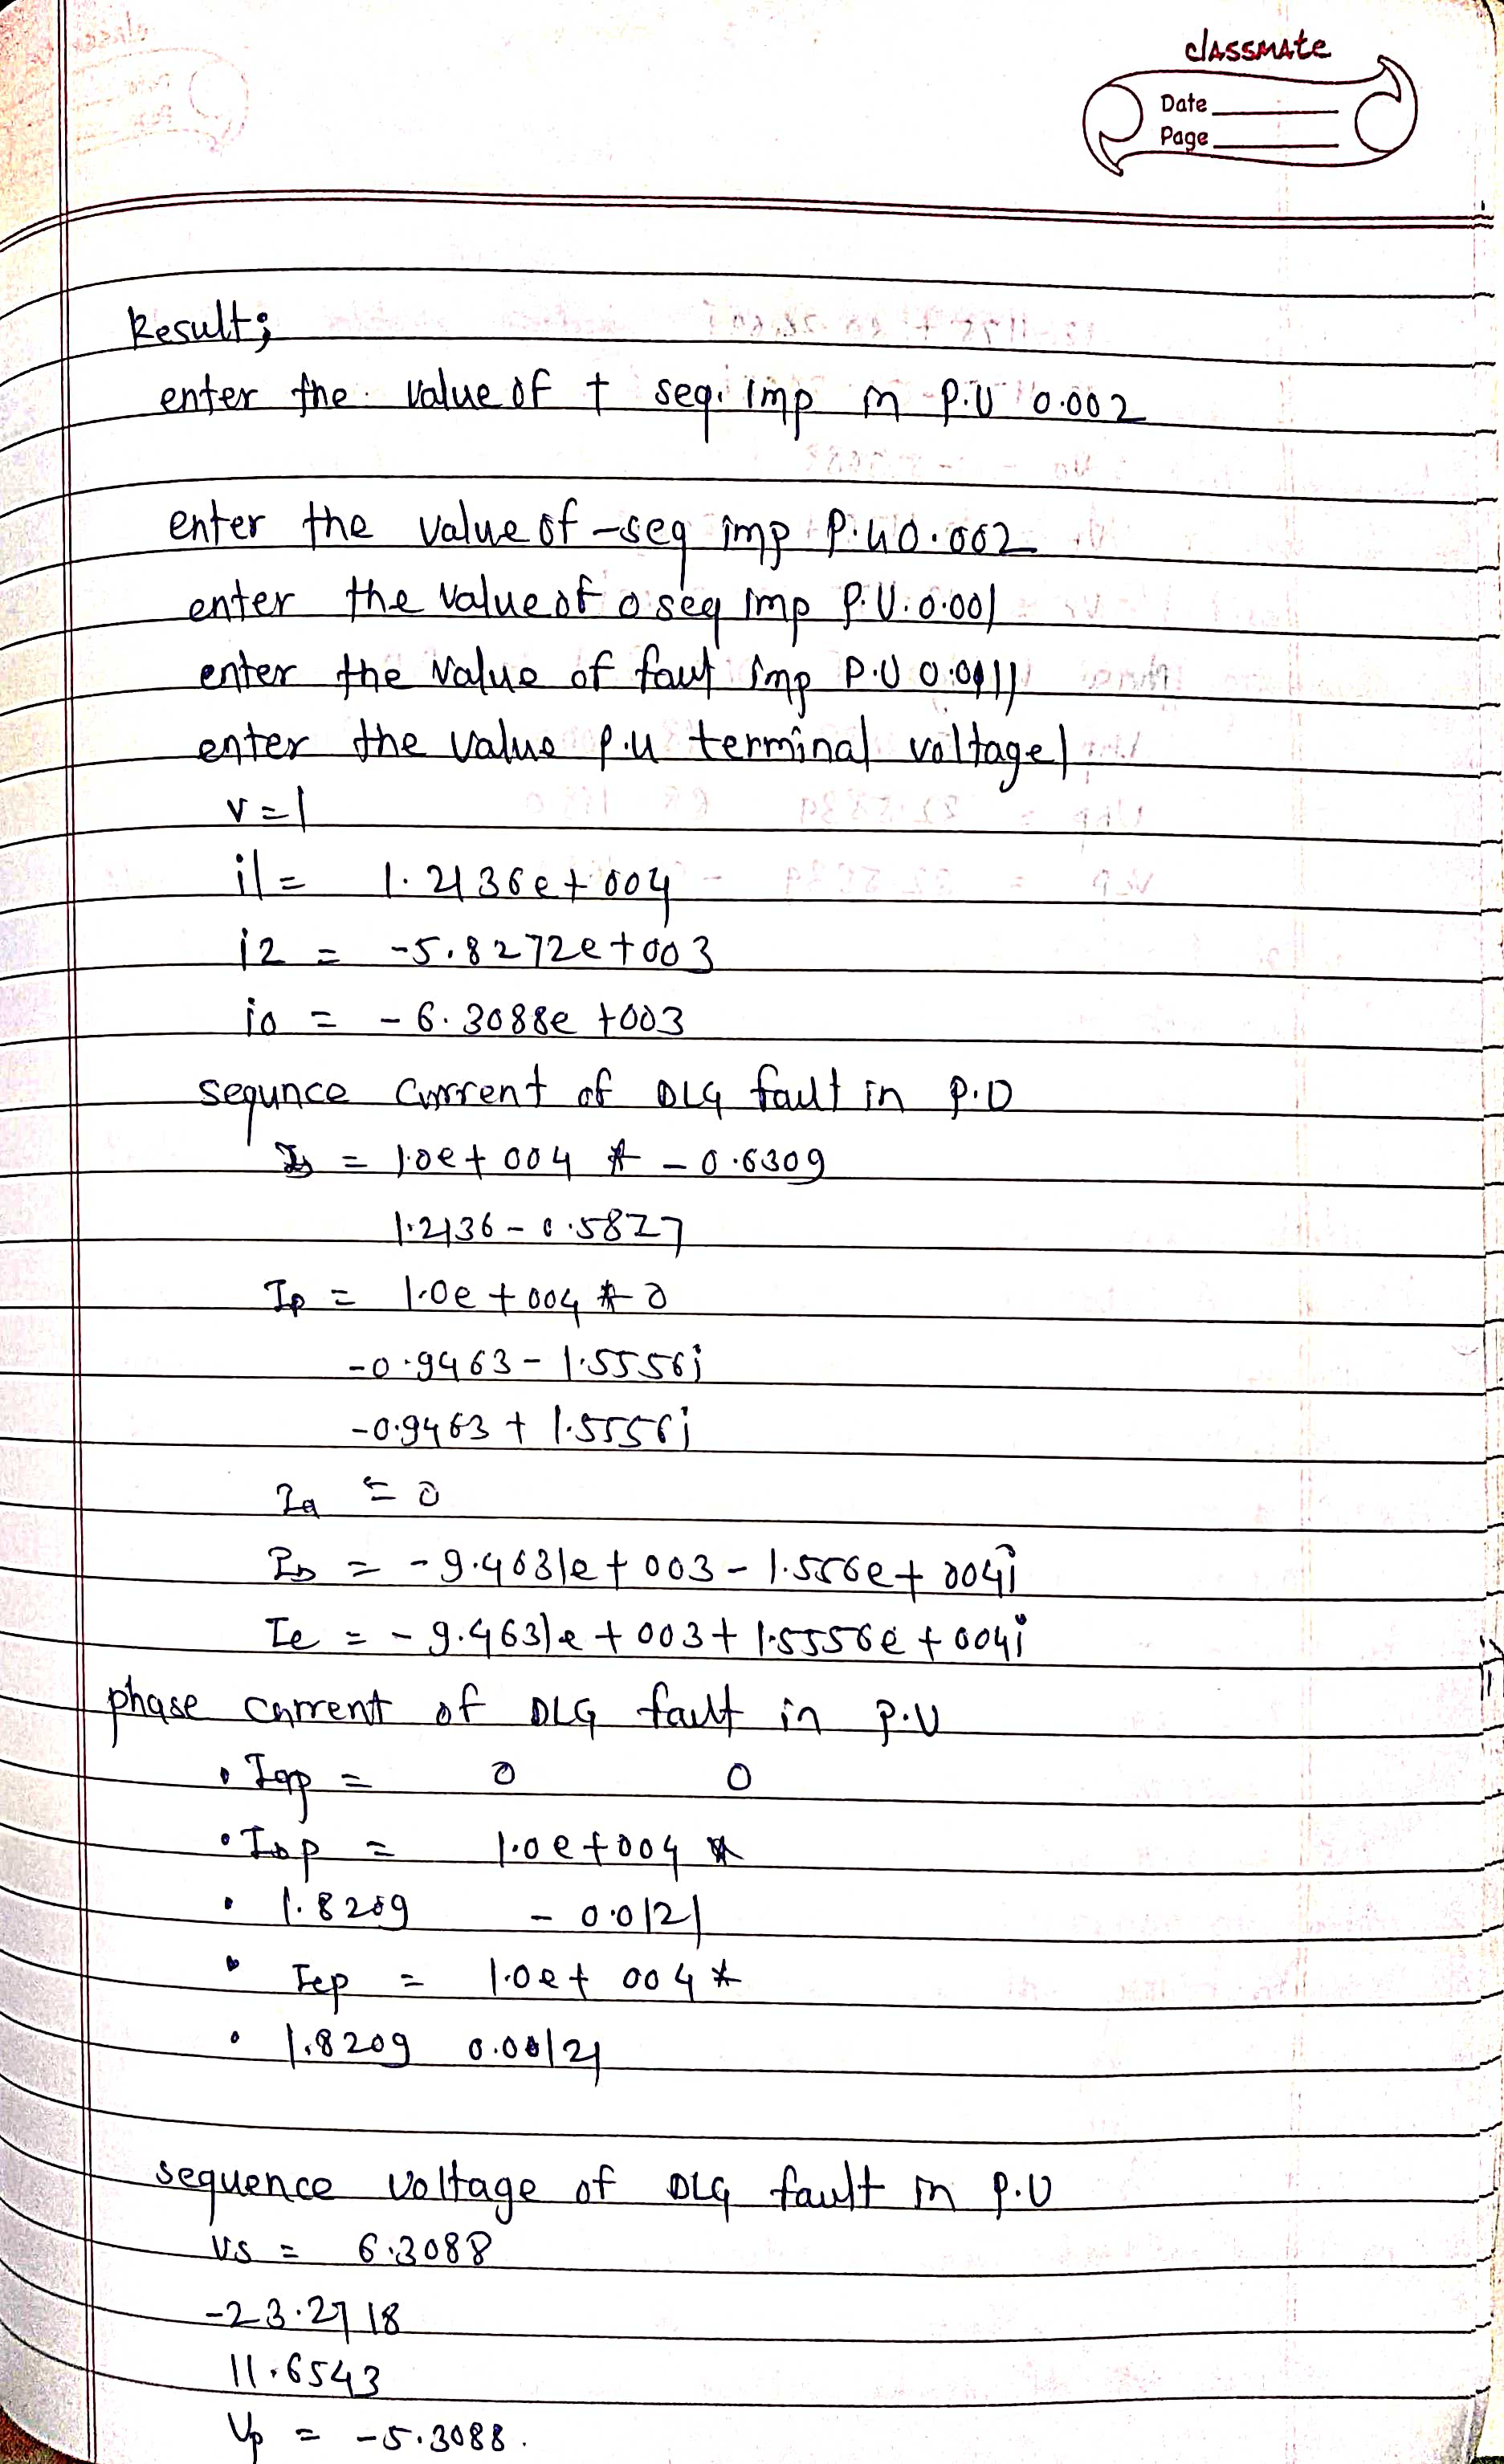 classmate
Date
Page
Result;
enter the value of + seq. imp in P.U 0.002
enter the value of -seq imp P.u 0.002
enter the value of o seq imp P.U. 0.001
enter the value of faut imp P.U
enter the value p.u terminal voltage 1
v = 1
i1 = 1.2136e+004
i2 = -5.8272e+003
io = -6.3088e +003
sequnce current of DLG fault in P.U
Is = 1.0e+004 * -0.6309
1.2136 - 0.5827
Ip = 1.0e+004 * 0
-0.9463 - 1.5556i
-0.9463 + 1.5556i
Ia = 0
Ib = -9.4631e+003 - 1.556e+004i
Ic = -9.4631e+003 + 1.5556e+004i
phase current of DLG fault in P.U
• Iap = 0 0
• Ibp = 1.0e+004 *
• 1.8209 - 0.0121
• Icp = 1.0e+004 *
• 1.8209 0.00121
sequence voltage of DLG fault in P.U
Vs = 6.3088
-23.2718
11.6543
Vp = -5.3088.